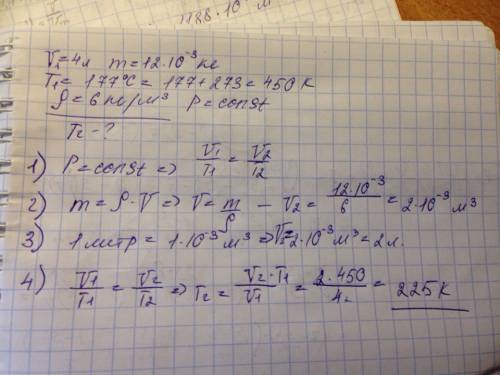 1128 · 10 м
V₁ = 4л m = 12·10⁻³ кг
T₁ = 177°C = 177 + 273 = 450 K
ρ = 6 кг/м³ P = const
T₂ - ?
1) P = const => V₁/T₁ = V₂/T₂
2) m = ρ·V => V = m/ρ - V₂ = 12·10⁻³/6 = 2·10⁻³ м³
3) 1 литр = 1·10⁻³ м³ => V₂ = 2·10⁻³ м³ = 2 л.
4) V₁/T₁ = V₂/T₂ => T₂ = V₂·T₁/V₁ = 2·450/4 = 225 K